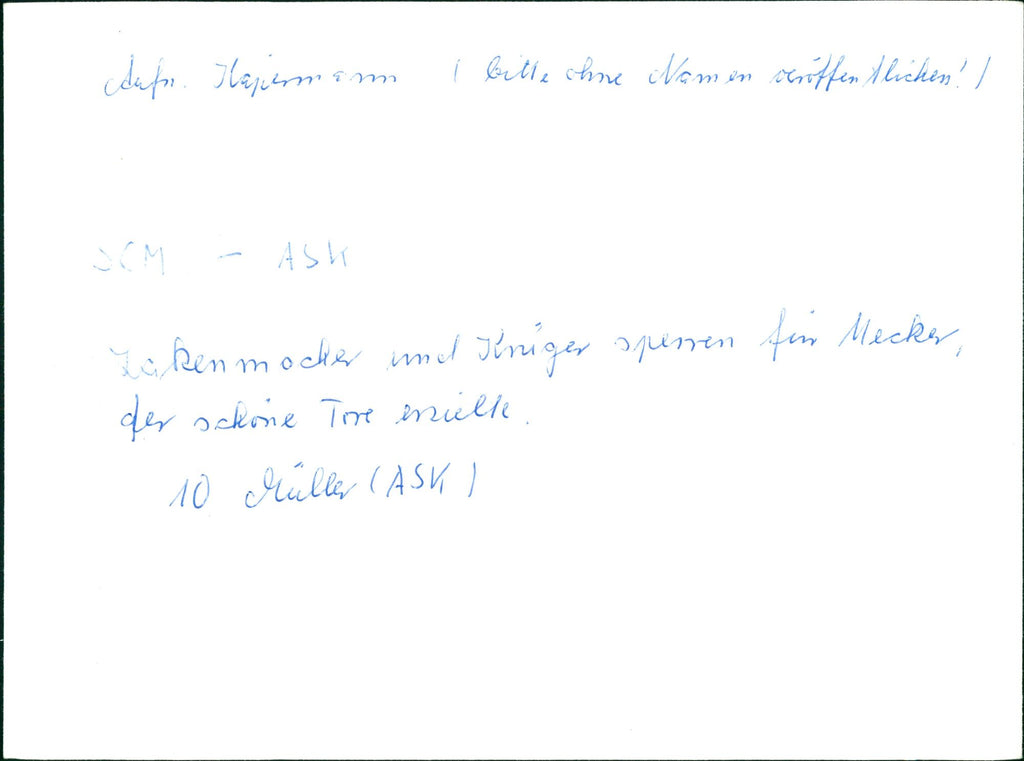 Aufn. Hajermann (bitte ohne Namen veröffentlichen!)
SCM - ASK
Lakenmacher und Krüger sperren für Mecker,
der schöne Tore erzielte.
10 Müller (ASK)